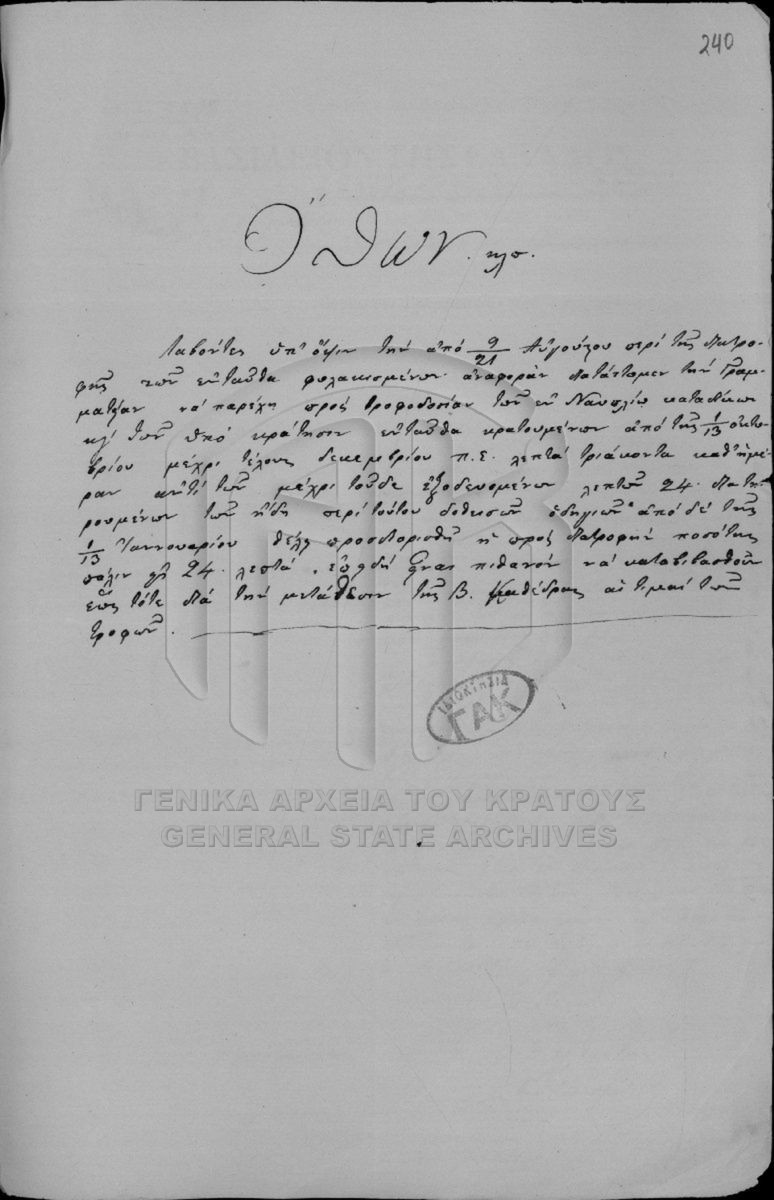 240
Ὄθων κλπ.
Λαβόντες ὑπ' ὄψιν τὴν ἀπὸ 9/21 Αὐγούστου περὶ τῆς διατρο-
φῆς τῶν ἐνταῦθα φυλακισμένων ἀναφορὰν διατάττομεν τὴν Γραμ-
ματείαν νὰ παρέχῃ πρὸς τροφοδοσίαν τῶν ἐν Ναυπλίῳ καταδίκων
καὶ τῶν ὑπὸ κράτησιν ἐνταῦθα κρατουμένων ἀπὸ τῆς 1/13 ὀκτω-
βρίου μέχρι τέλους δεκεμβρίου π.ἔ. λεπτὰ τριάκοντα καθ' ἡμέ-
ραν ἀντὶ τῶν μέχρι τοῦδε ἐξοδευομένων λεπτῶν 24. διατη-
ρουμένων τῶν ἤδη περὶ τούτου δοθεισῶν ὁδηγιῶν· ἀπὸ δὲ τῆς
1/13 Ἰαννουαρίου θέλει προσδιορισθῆ ἡ πρὸς διατροφὴν ποσότης
πάλιν εἰς 24. λεπτά, ἐπειδὴ εἶναι πιθανὸν νὰ καταβιβασθοῦν
ἕως τότε διὰ τὴν μετάθεσιν τῆς Β. καθέδρας αἱ τιμαὶ τῶν
τροφῶν.
ΙΔΙΟΚΤΗΣΙΑ
ΓΑΚ
ΓΕΝΙΚΑ ΑΡΧΕΙΑ ΤΟΥ ΚΡΑΤΟΥΣ
GENERAL STATE ARCHIVES